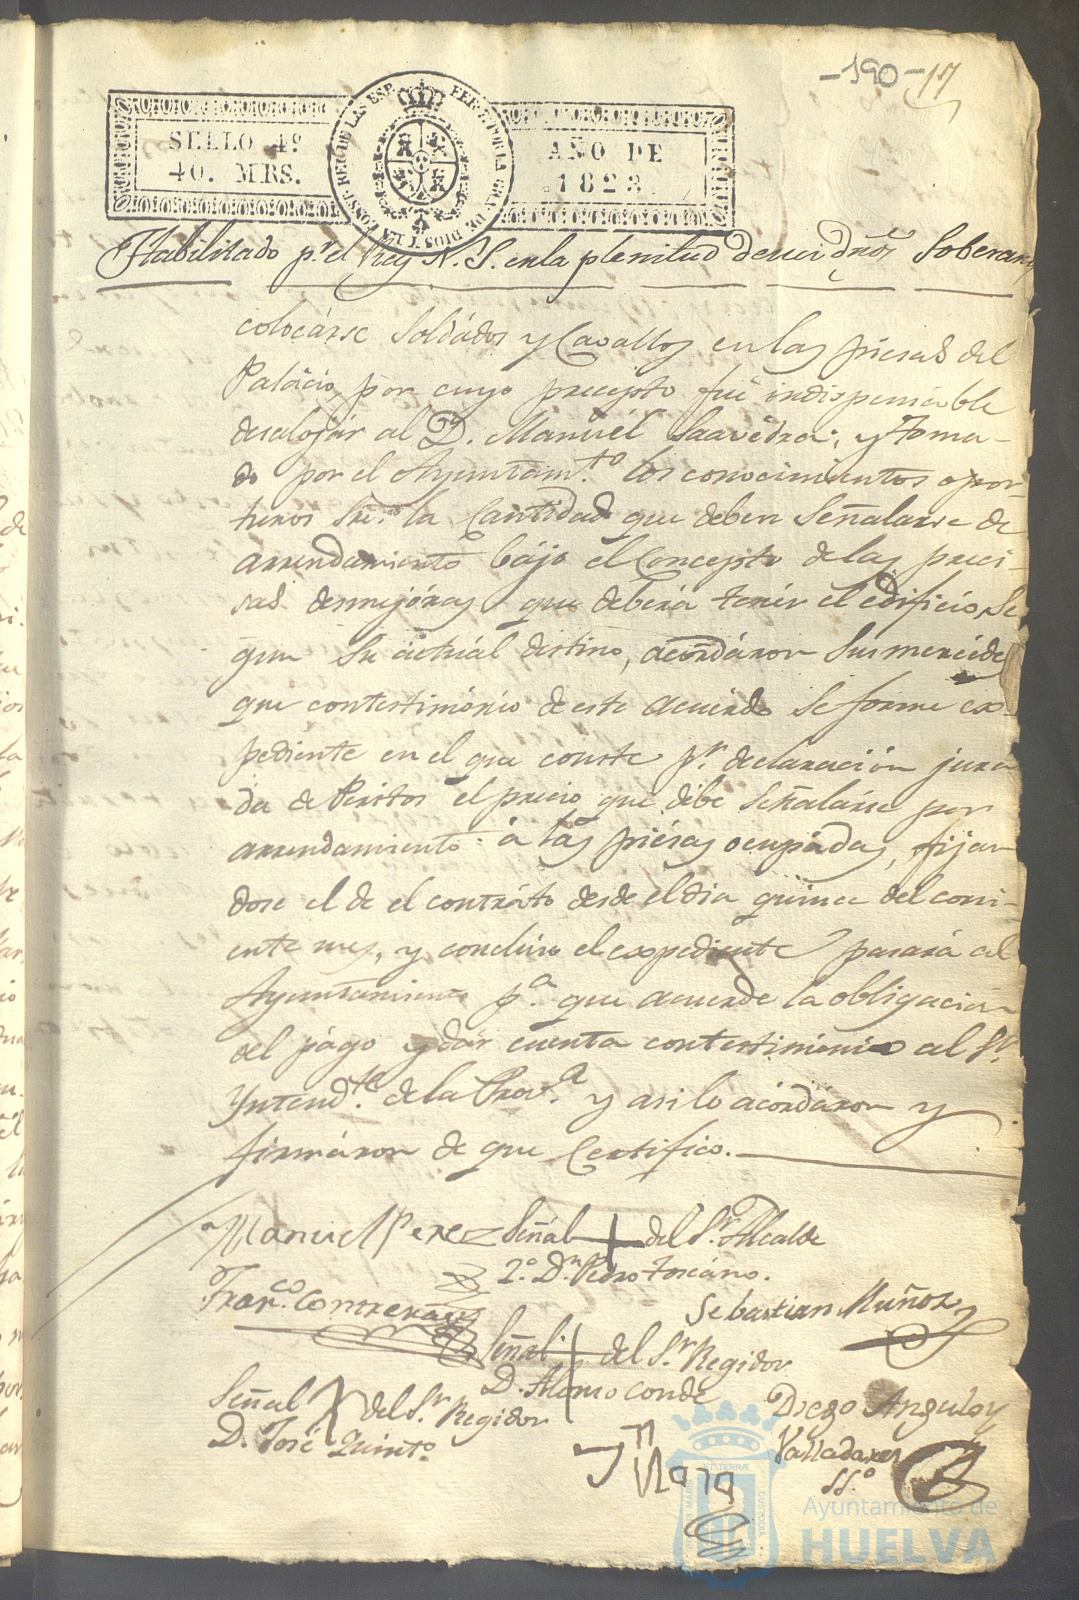 -190- 17
SELLO 4º
40. MRS.
AÑO DE
1823.
Habilitado pr. el Rey N. S. en la plenitud de sus dros. Soberanos
colocárse Soldádos y Cavallos en las piesas del
Palácio, por cuyo precepto fué indispensable
desalojár al D. Manuél Saavedra; y toma-
do por el Ayuntamto. los conocimientos opor-
tunos Sre. la Cantidad que deben Señalarse de
arrendamiento bájo el Concepto de las preci-
sas desmejóras que deberá tenér el edificio, Se
gun su actuál destino, acordáron Sus mercédes
que con testimónio de este acuerdo Se forme ex-
pediente en el que conste pr. declaración jura
da de Peritos el precio que debe Señalárse por
arrendamiento á las piésas ocupádas, fijan
dose el de el contráto desde el dia quince del corri-
ente mes, y concluso el expediente pasará al
Ayuntamiento pa. que acuerde la obligacion
del págo y dár cuenta con testimonio al Sr.
Yntendte. de la Prova. y asi lo acordáron y
firmáron de que Certifico.
Manuel Perez Señal + del Sr. Alcalde
2º. Dn. Pedro Toscáno.
Franco. Contreras Sebastian Muñoz
Señal + del Sr. Regidor
D. Alonso Conde
Señal + del Sr. Regidor
D. José Quinto.
Diego Angulo y
Valladares
SSº.
Ayuntamiento de
HUELVA